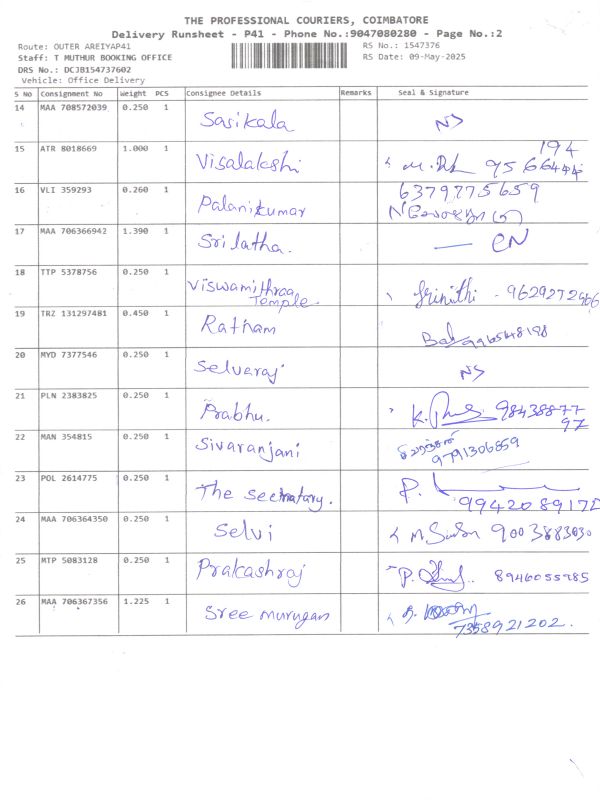 THE PROFESSIONAL COURIERS, COIMBATORE
Delivery Runsheet - P41 - Phone No.:9047080280 - Page No.:2
Route: OUTER AREIYAP41 RS No.: 1547376
Staff: T MUTHUR BOOKING OFFICE RS Date: 09-May-2025
DRS No.: DCJB154737602
Vehicle: Office Delivery
S No Consignment No Weight PCS Consignee Details Remarks Seal & Signature
14 MAA 708572039 0.250 1 Sasikala NS
15 ATR 8018669 1.000 1 Visalakshi
16 VLI 359293 0.260 1 Palanikumar 6379775659
17 MAA 706366942 1.390 1 Srilatha.
18 TTP 5378756 0.250 1 Viswamithraa Temple. Srinithi - 9629272966
19 TRZ 131297481 0.450 1 Ratnam 9965648198
20 MYD 7377546 0.250 1 Selvaraj NS
21 PLN 2383825 0.250 1 Prabhu. 98438877 97
22 MAN 354815 0.250 1 Sivaranjani 9791306859
23 POL 2614775 0.250 1 The Secretary. P. 9942089172
24 MAA 706364350 0.250 1 Selvi 9003883030
25 MTP 5083128 0.250 1 Prakashraj P. 8946055985
26 MAA 706367356 1.225 1 Sree murugan 7358921202.